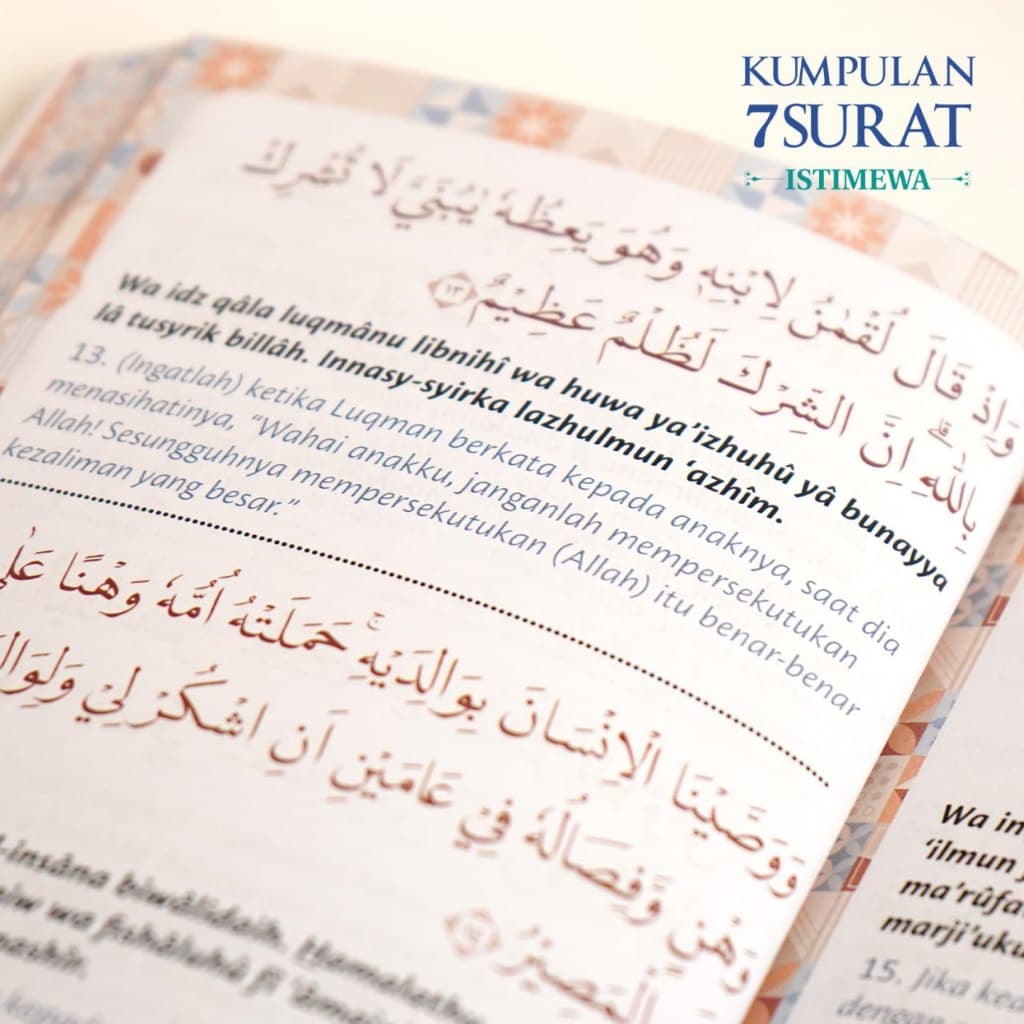 KUMPULAN
7SURAT
ISTIMEWA
وَاِذْ قَالَ لُقْمٰنُ لِابْنِهٖ وَهُوَ يَعِظُهٗ يٰبُنَيَّ لَا تُشْرِكْ
بِاللّٰهِ ۗاِنَّ الشِّرْكَ لَظُلْمٌ عَظِيْمٌ ١٣
Wa idz qâla luqmânu libnihî wa huwa ya'izhuhû yâ bunayya
lâ tusyrik billâh. Innasy-syirka lazhulmun 'azhîm.
13. (Ingatlah) ketika Luqman berkata kepada anaknya, saat dia
menasihatinya, "Wahai anakku, janganlah mempersekutukan
Allah! Sesungguhnya mempersekutukan (Allah) itu benar-benar
kezaliman yang besar."
وَوَصَّيْنَا الْاِنْسَانَ بِوَالِدَيْهِۚ حَمَلَتْهُ اُمُّهٗ وَهْنًا عَلٰى
وَهْنٍ وَّفِصَالُهٗ فِيْ عَامَيْنِ اَنِ اشْكُرْ لِيْ
الْمَصِيْرُ ١٤
-insâna biwâlidaih.
wa fishâluhû fî
Wa in
'ilmun
15. Jika
dengan